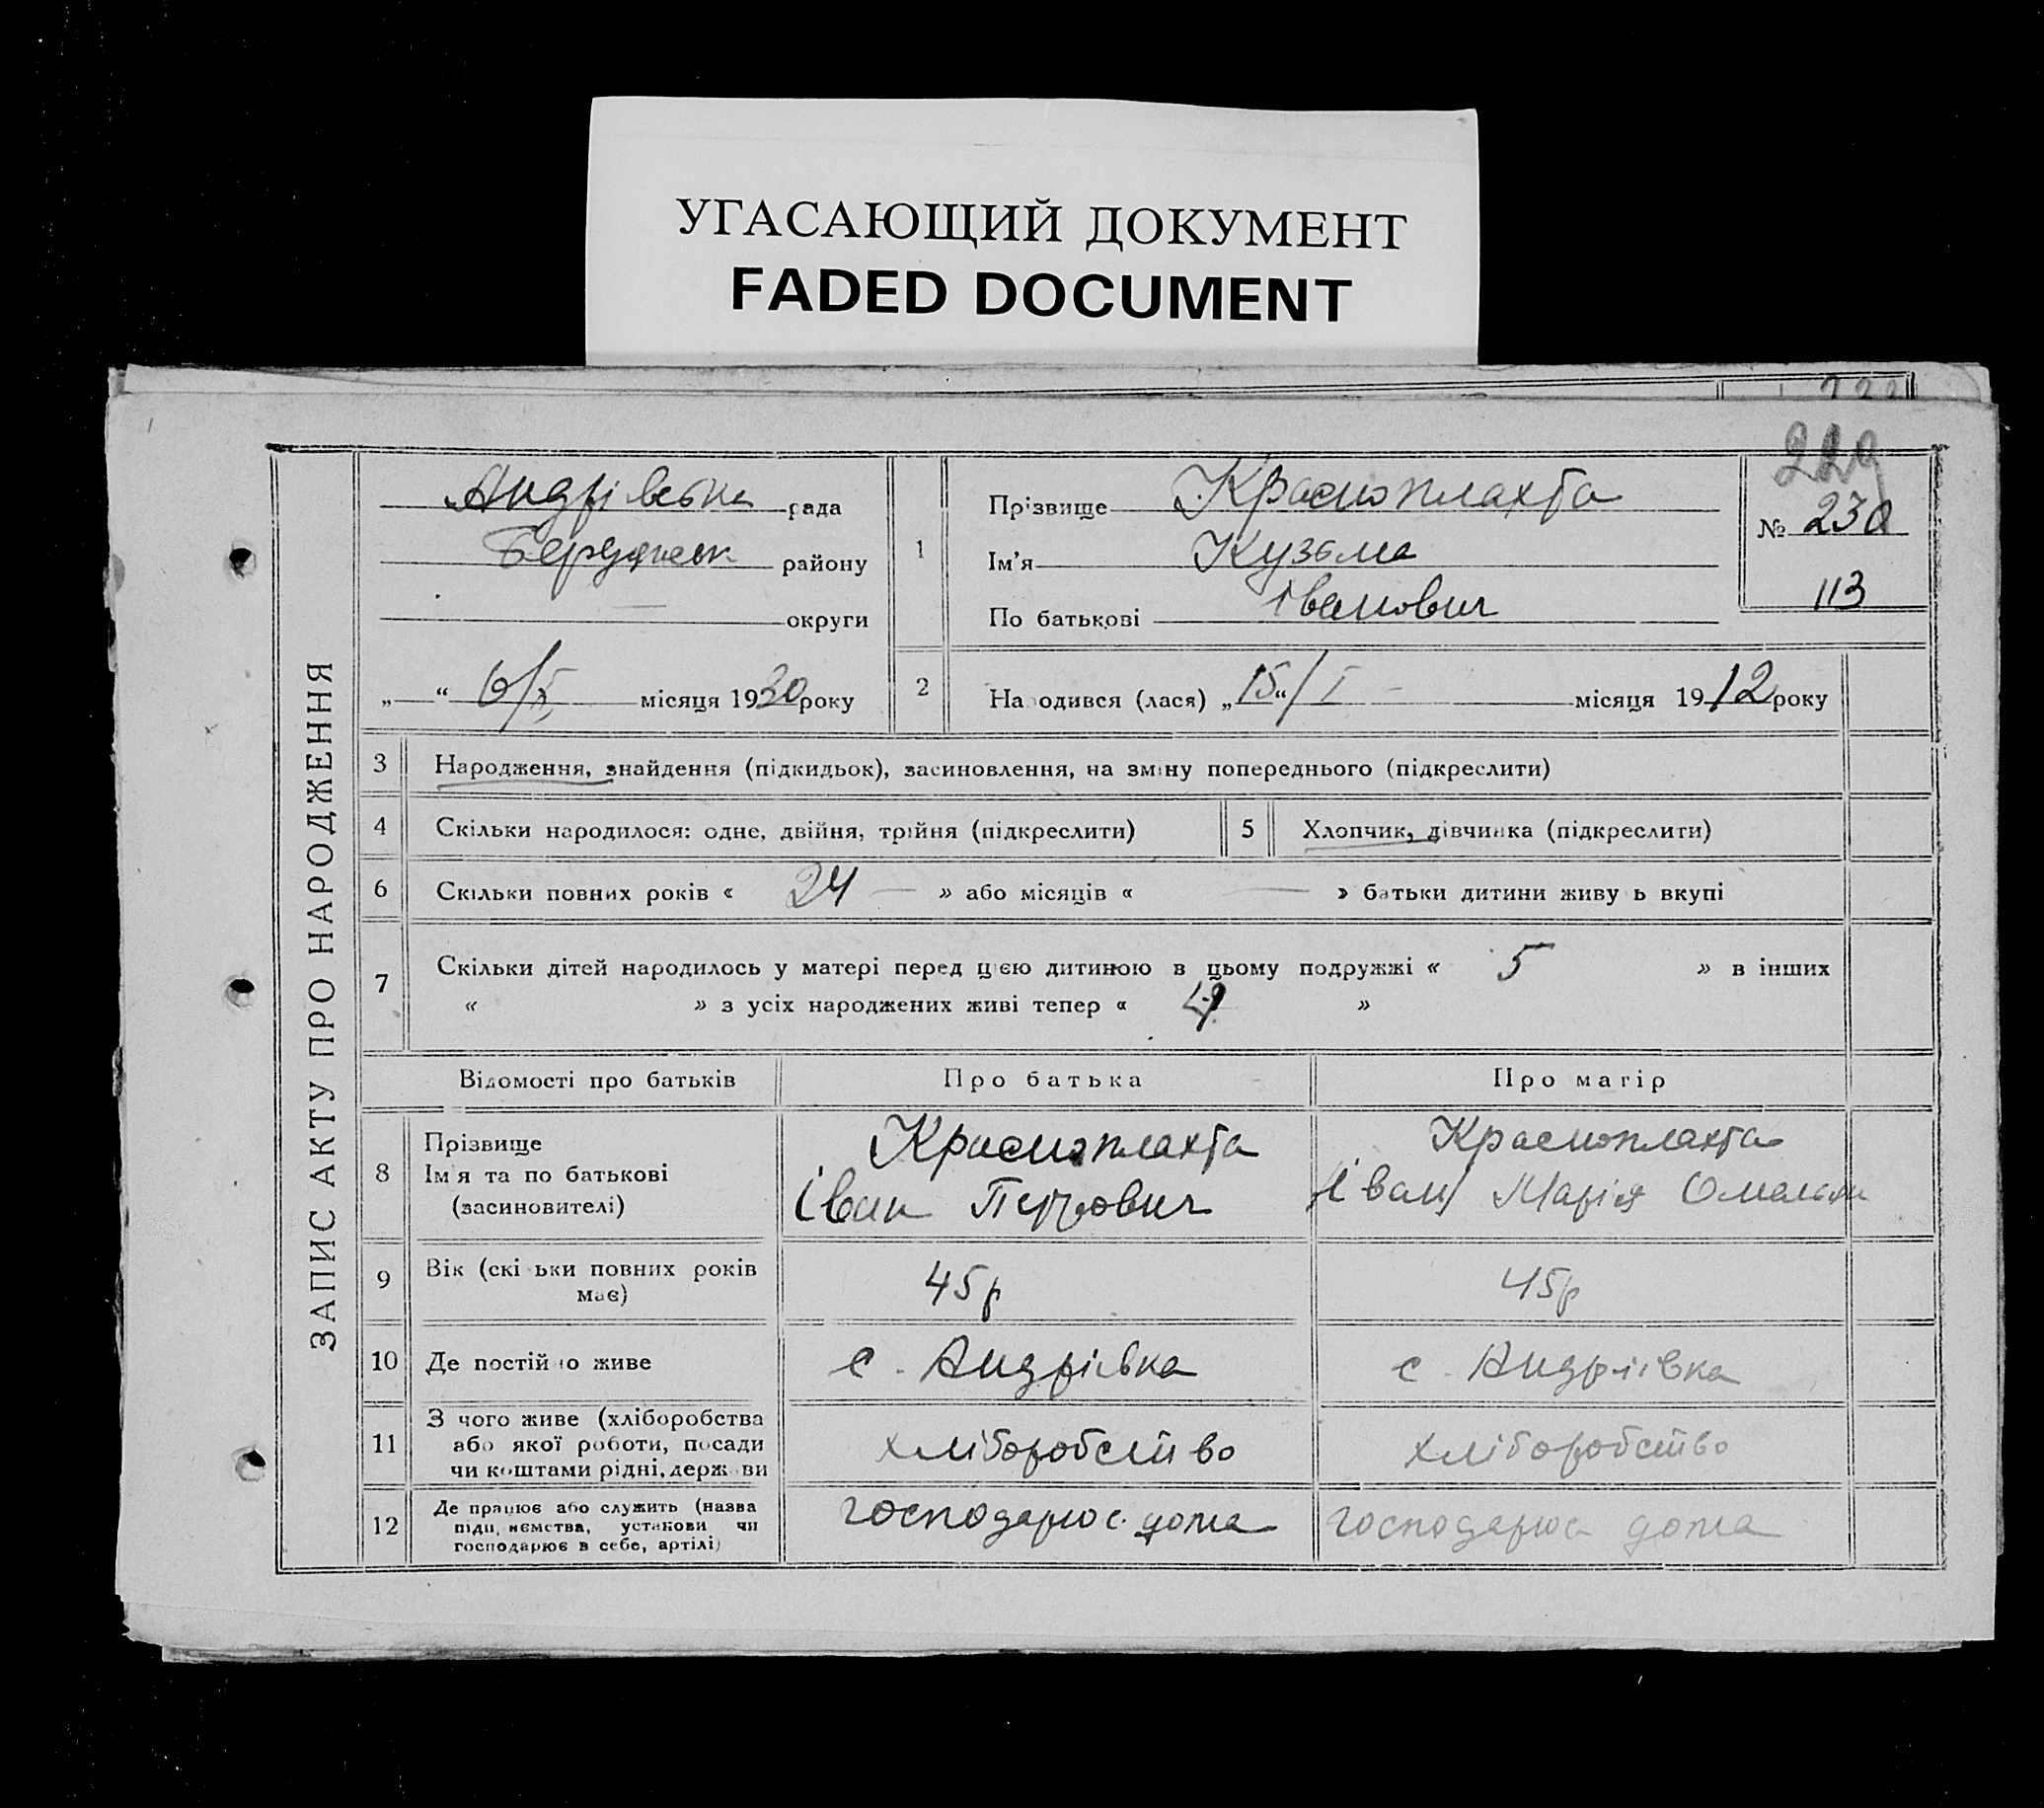 УГАСАЮЩИЙ ДОКУМЕНТ
FADED DOCUMENT
229
ЗАПИС АКТУ ПРО НАРОДЖЕННЯ
Андрівська рада
району
округи
„ “ 6/X місяця 1930 року
1
Прізвище Краснoплахта
Ім'я Кузьма
По батькові Іванович
№ 230
113
2 Народився (лася) „15“/I місяця 1912 року
3 Народження, знайдення (підкидьок), засиновлення, на зміну попереднього (підкреслити)
4 Скільки народилося: одне, двійня, трійня (підкреслити)
5 Хлопчик, дівчинка (підкреслити)
6 Скільки повних років « 24 — » або місяців « — » батьки дитини живу ь вкупі
7 Скільки дітей народилось у матері перед цією дитиною в цьому подружжі « 5 » в інших
« » з усіх народжених живі тепер « »
Відомості про батьків Про батька Про матір
8 Прізвище
Ім я та по батькові
(засиновителі)
Краснoплахта
Іван Петрович
Краснoплахта
Іван Марія
9 Вік (скі ьки повних років
має)
45р
45р
10 Де постійно живе
с. Андрівка
с. Андріівка
11 З чого живе (хліборобства
або якої роботи, посади
чи коштами рідні, держави
хліборобство
хліборобство
12 Де працює або служить (назва
підп, иємства, установи чи
господарює в себе, артілі)
господарює дома
господарює дома